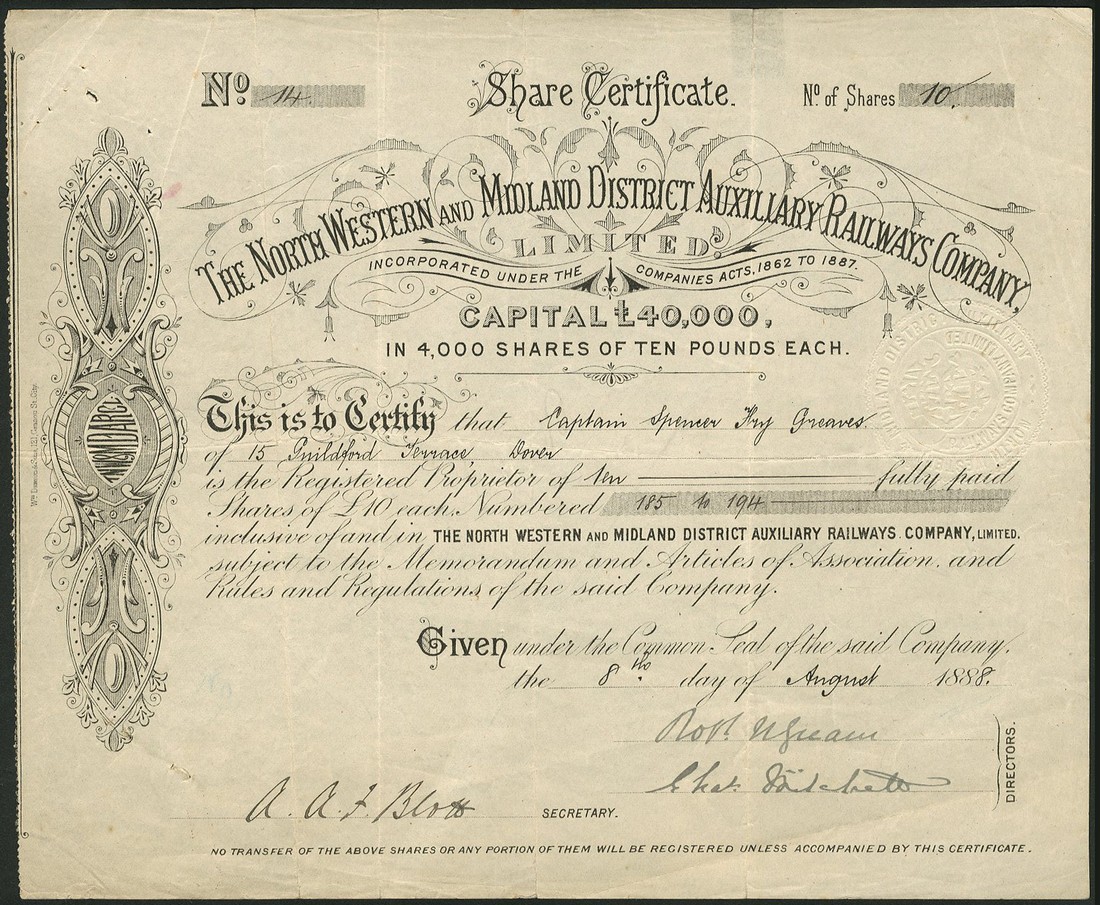 No 14
Share Certificate.
No. of Shares 10
THE NORTH WESTERN AND MIDLAND DISTRICT AUXILIARY RAILWAYS COMPANY,
LIMITED.
INCORPORATED UNDER THE COMPANIES ACTS, 1862 TO 1887.
CAPITAL £40,000,
IN 4,000 SHARES OF TEN POUNDS EACH.
This is to Certify that Captain Spencer Hry Greaves
of 15 Guildford Terrace Dover
is the Registered Proprietor of ten fully paid
Shares of £10 each, Numbered 185 to 194
inclusive of and in THE NORTH WESTERN AND MIDLAND DISTRICT AUXILIARY RAILWAYS COMPANY, LIMITED.
subject to the Memorandum and Articles of Association, and
Rules and Regulations of the said Company.
Given under the Common Seal of the said Company,
the 8th day of August 1888.
DIRECTORS.
A. A. F. Blott SECRETARY.
NO TRANSFER OF THE ABOVE SHARES OR ANY PORTION OF THEM WILL BE REGISTERED UNLESS ACCOMPANIED BY THIS CERTIFICATE.